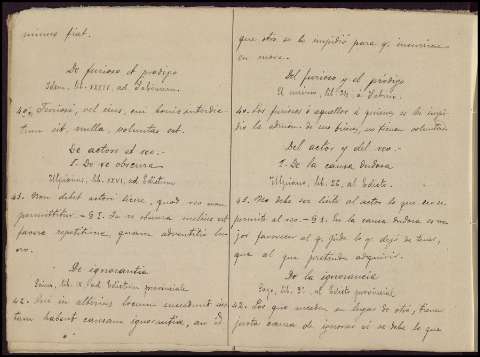 minus fiat.
De furioso et prodigo
Idem, lib. XXXIV, ad Sabinum.
40. Furiosi, vel eius, cui bonis interdic-
tum sit, nulla, voluntas est.
De actore et reo.-
1. De re obscura
Ulpianus, lib. XXVI, ad Edictum
41. Non debet actori licere, quod reo non
permittitur.- § 1. In re obscura melius est
favere repetitione, quam adventitii lu-
cro.
De ignorantia
lib. IX ad Edictum provinciale
42. Qui in alterius locum succedunt ius-
tam habent causam ignorantiæ, an id
que otro se lo impidió para q. incurriese
en mora.
Del furioso y el pródigo
El mismo, lib. 34, á Sabin.
40. Los furiosos ó aquellos á quienes se les impi-
dió la admon. de sus bienes, no tienen voluntad.
Del actor y del reo.-
1- De la causa dudosa
Ulpiano, lib. 26, al Edicto.
41. No debe ser lícito al actor lo que no se
permite al reo.- § 1. En la causa dudosa es me-
jor favorecer al q. pide lo q. dejó de tener,
que al que pretende adquirir.
De la ignorancia
Gayo, lib. 9º. al Edicto provincial
42. Los que suceden en lugar de otro, tienen
justa causa de ignorar si se debe lo que